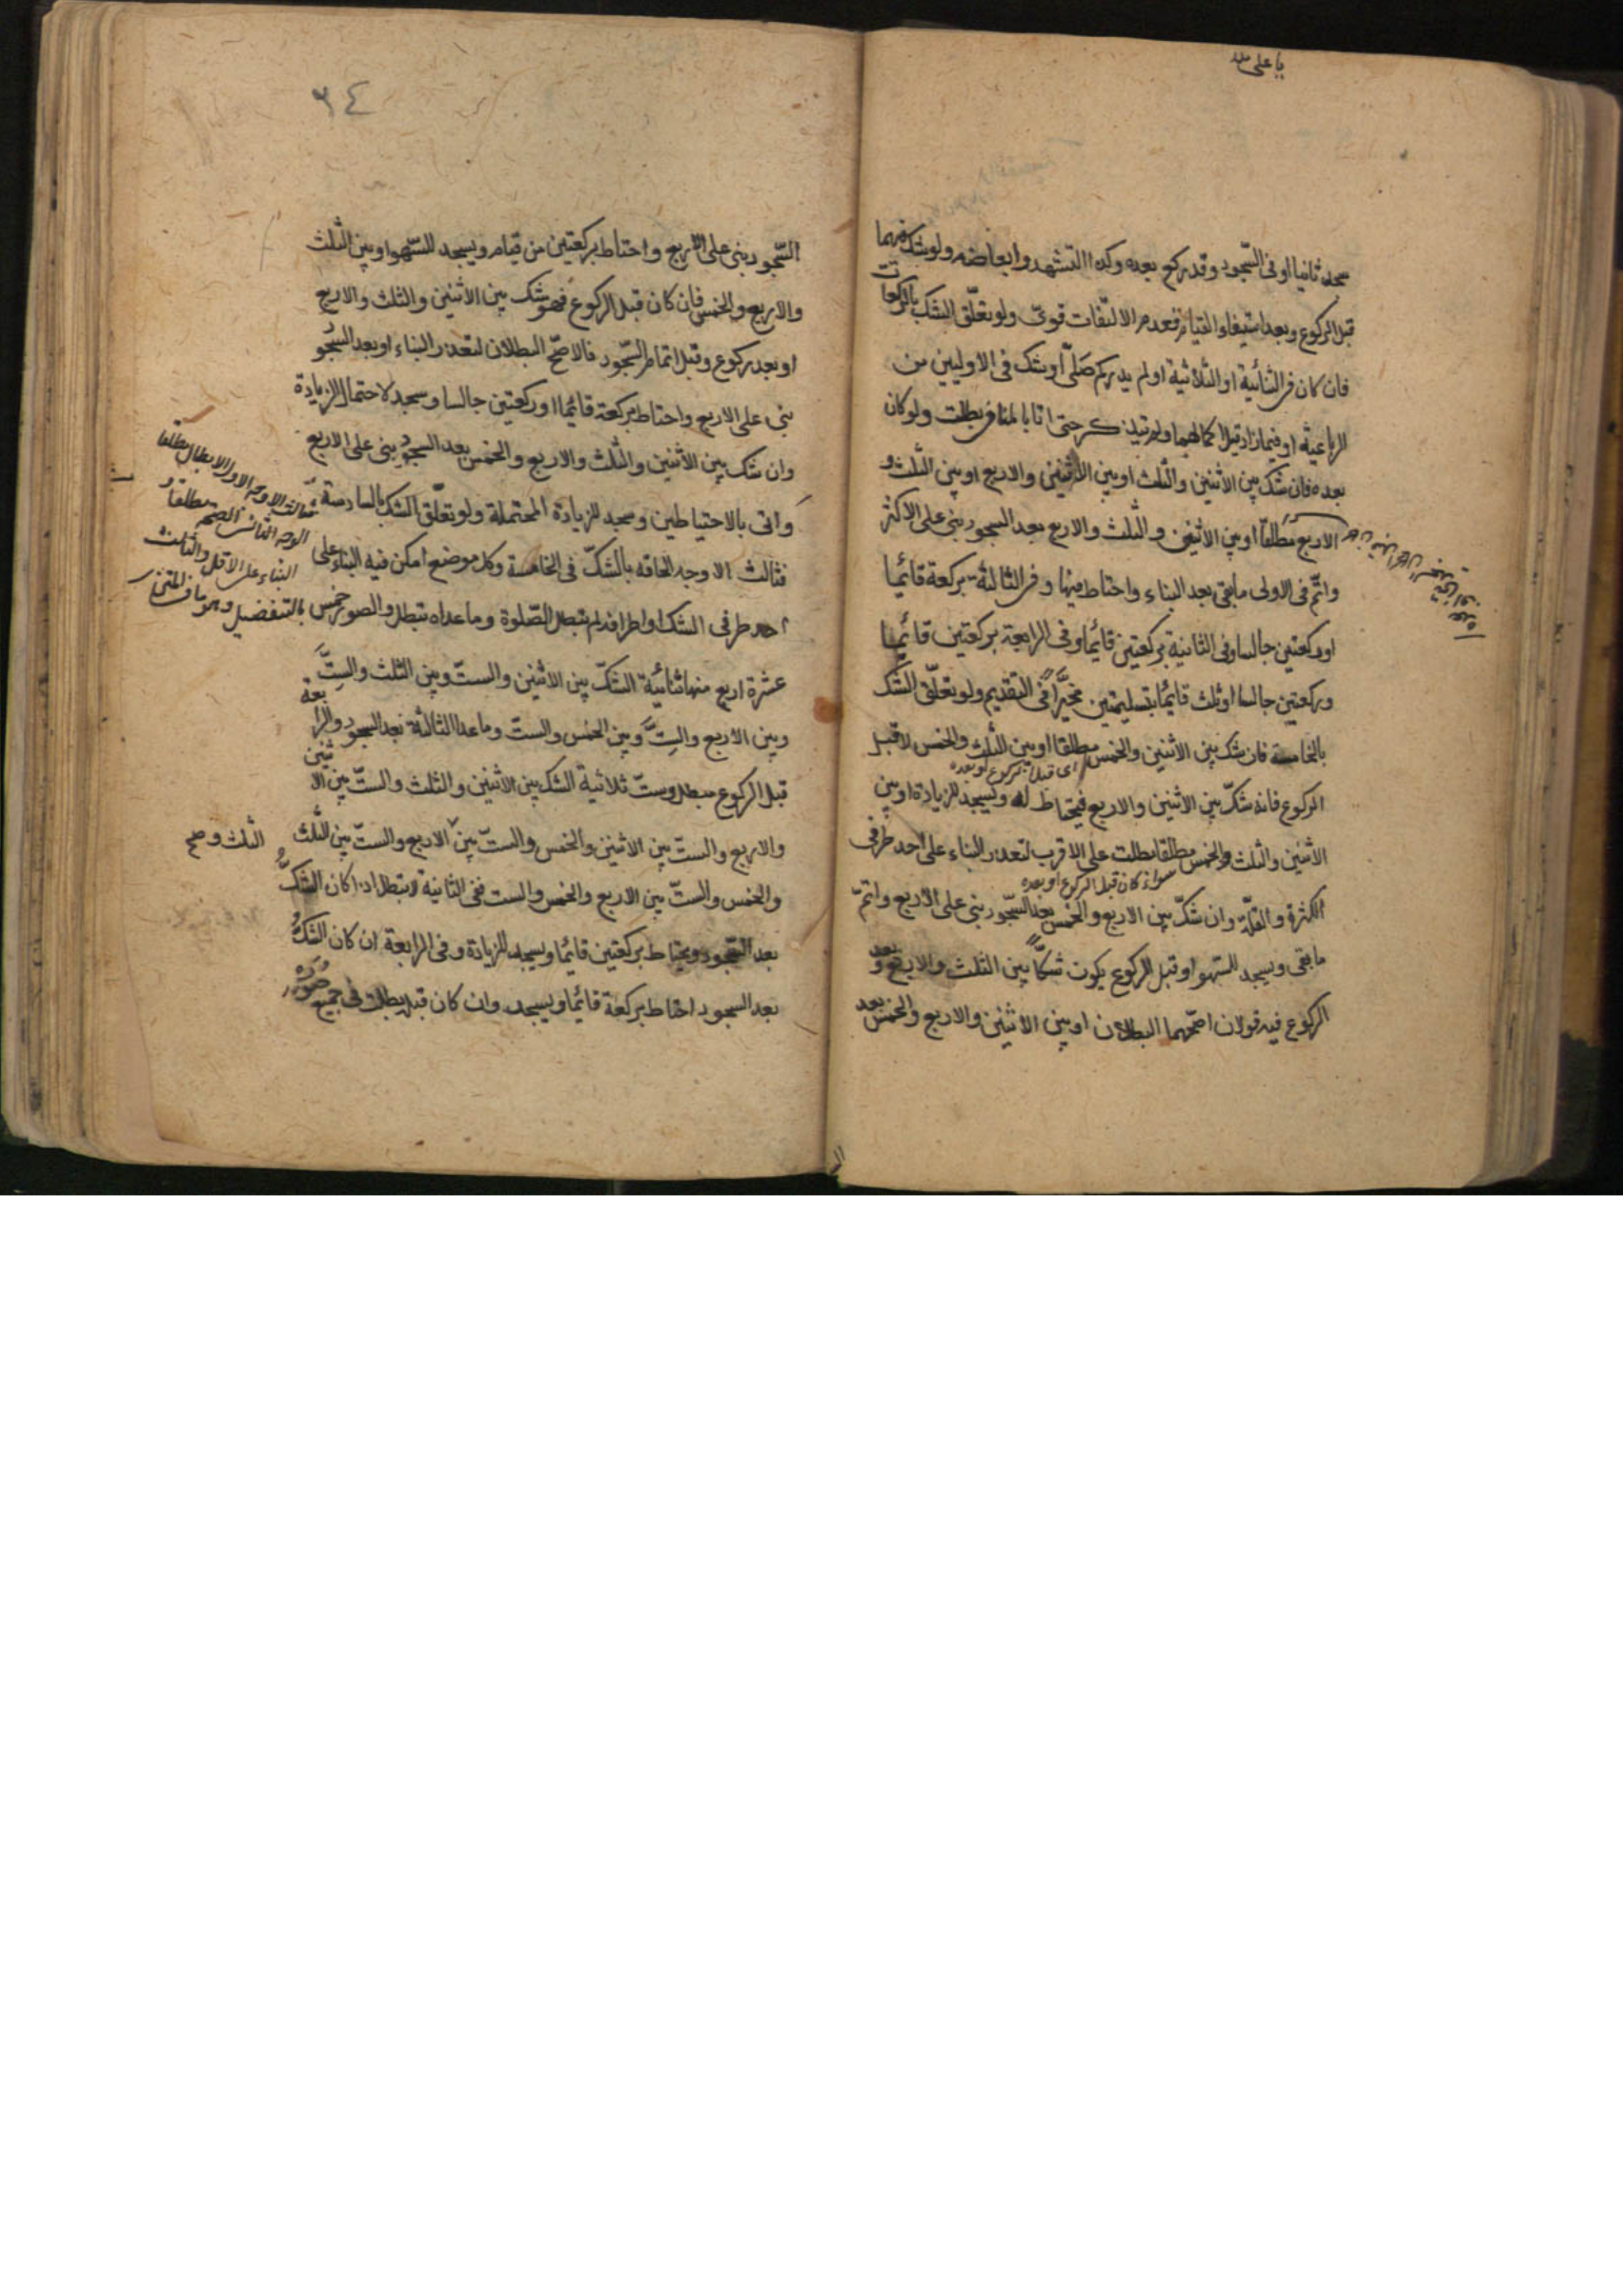 يا على مدد
سجد ثانيا او فى السّجود وقد ركع بعده وكذا التشهد وابعاضه ولو شك فيهما
قبل الركوع وبعد استيفاء القيام فعدم الالتفات قوىّ ولو تعلّق الشك بالركعات
فان كان فى الثنائية او الثلاثية او لم يدر كم صَلّى او شك فى الاوليين من
الرباعية او فيما زاد قبل اكمالهما ولم يتذكر حتى اتا بالمنافى بطلت ولو كان
بعده فان شك بين الاثنين والثلث او بين الاثنين والاربع او بين الثلث و
الاربع مطلقاً او بين الاثنين والثلث والاربع بعد السجود بنى على الاكثر
واتم فى الاولى ما بقى بعد البناء واحتاط فيها وفى الثالثة بركعة قائما
او ركعتين جالسا وفى الثانية بركعتين قائما وفى الرابعة بركعتين قائما
وركعتين جالسا او ثلث قائما بتسليمتين مخيّراً فى التقديم ولو تعلّق الشك
بالخامسة فان شك بين الاثنين والخمس مطلقا او بين الثلث والخمس لا قبل
اى قبل الركوع او بعده
الركوع فانه شكّ بين الاثنين والاربع فيحتاط له ويسجد للزيادة او بين
الاثنين والثلث والخمس مطلقا بطلت على الاقرب لتعذر البناء على احد طرفى
سواء كان قبل الركوع او بعده
الكثرة والقلّة وان شكّ بين الاربع والخمس بعد السّجود بنى على الاربع واتمّ
ما بقى ويسجد للسهو او قبل الركوع يكون شكّاً بين الثلث والاربع وبعد
الركوع فيه قولان اصحّهما البطلان او بين الاثنين والاربع والخمس بعد
٣٤
السّجود بنى على الاربع واحتاط بركعتين من قيام ويسجد للسّهو او بين الثلث
والاربع والخمس فان كان قبل الركوع فهو شك بين الاثنين والثلث والاربع
او بعد ركوع وقبل اتمام السّجود فالاصحّ البطلان لتعذر البناء او بعد السّجو
بنى على الاربع واحتاط بركعة قائما او ركعتين جالسا وسجد لاحتمال الزيادة
وان شك بين الاثنين والثلث والاربع والخمس بعد السجود بنى على الاربع
واتى بالاحتياطين وسجد للزيادة المحتملة ولو تعلّق الشك بالسادسة
فثالث الاوجه الحاقه بالشكّ فى الخامسة وكل موضع امكن فيه البناء على
احد طرفى الشك او اطرافه لم تبطل الصّلوة وما عداه تبطل والصور خمس
ثالث الاوجه الاول الابطال مطلقا
الوجه الثانى الصحه مطلقا و
البناء على الاقل والثالث
بالتفضيل وهو ما فى المتن
عشرة اربع منها ثنائية الشكّ بين الاثنين والستّ وبين الثلث والستّ
وبين الاربع والستّ وبين الخمس والستّ وما عدا الثالثة بعد السجود والرابعة
قبل الركوع مبطل وستّ ثلاثية الشك بين الاثنين والثلث والستّ بين الاثنين
والاربع والستّ بين الاثنين والخمس والستّ بين الاربع والستّ بين الثلث
الثلث و صح
والخمس والستّ بين الاربع والخمس والست ففى الثانية لا تبطل اذا كان الشكّ
بعد السّجود ويحتاط بركعتين قائما ويسجد للزيادة وفى الرابعة ان كان الشكّ
بعد السجود احتاط بركعة قائما ويسجد وان كان قبله بطلت فى جميع صوره